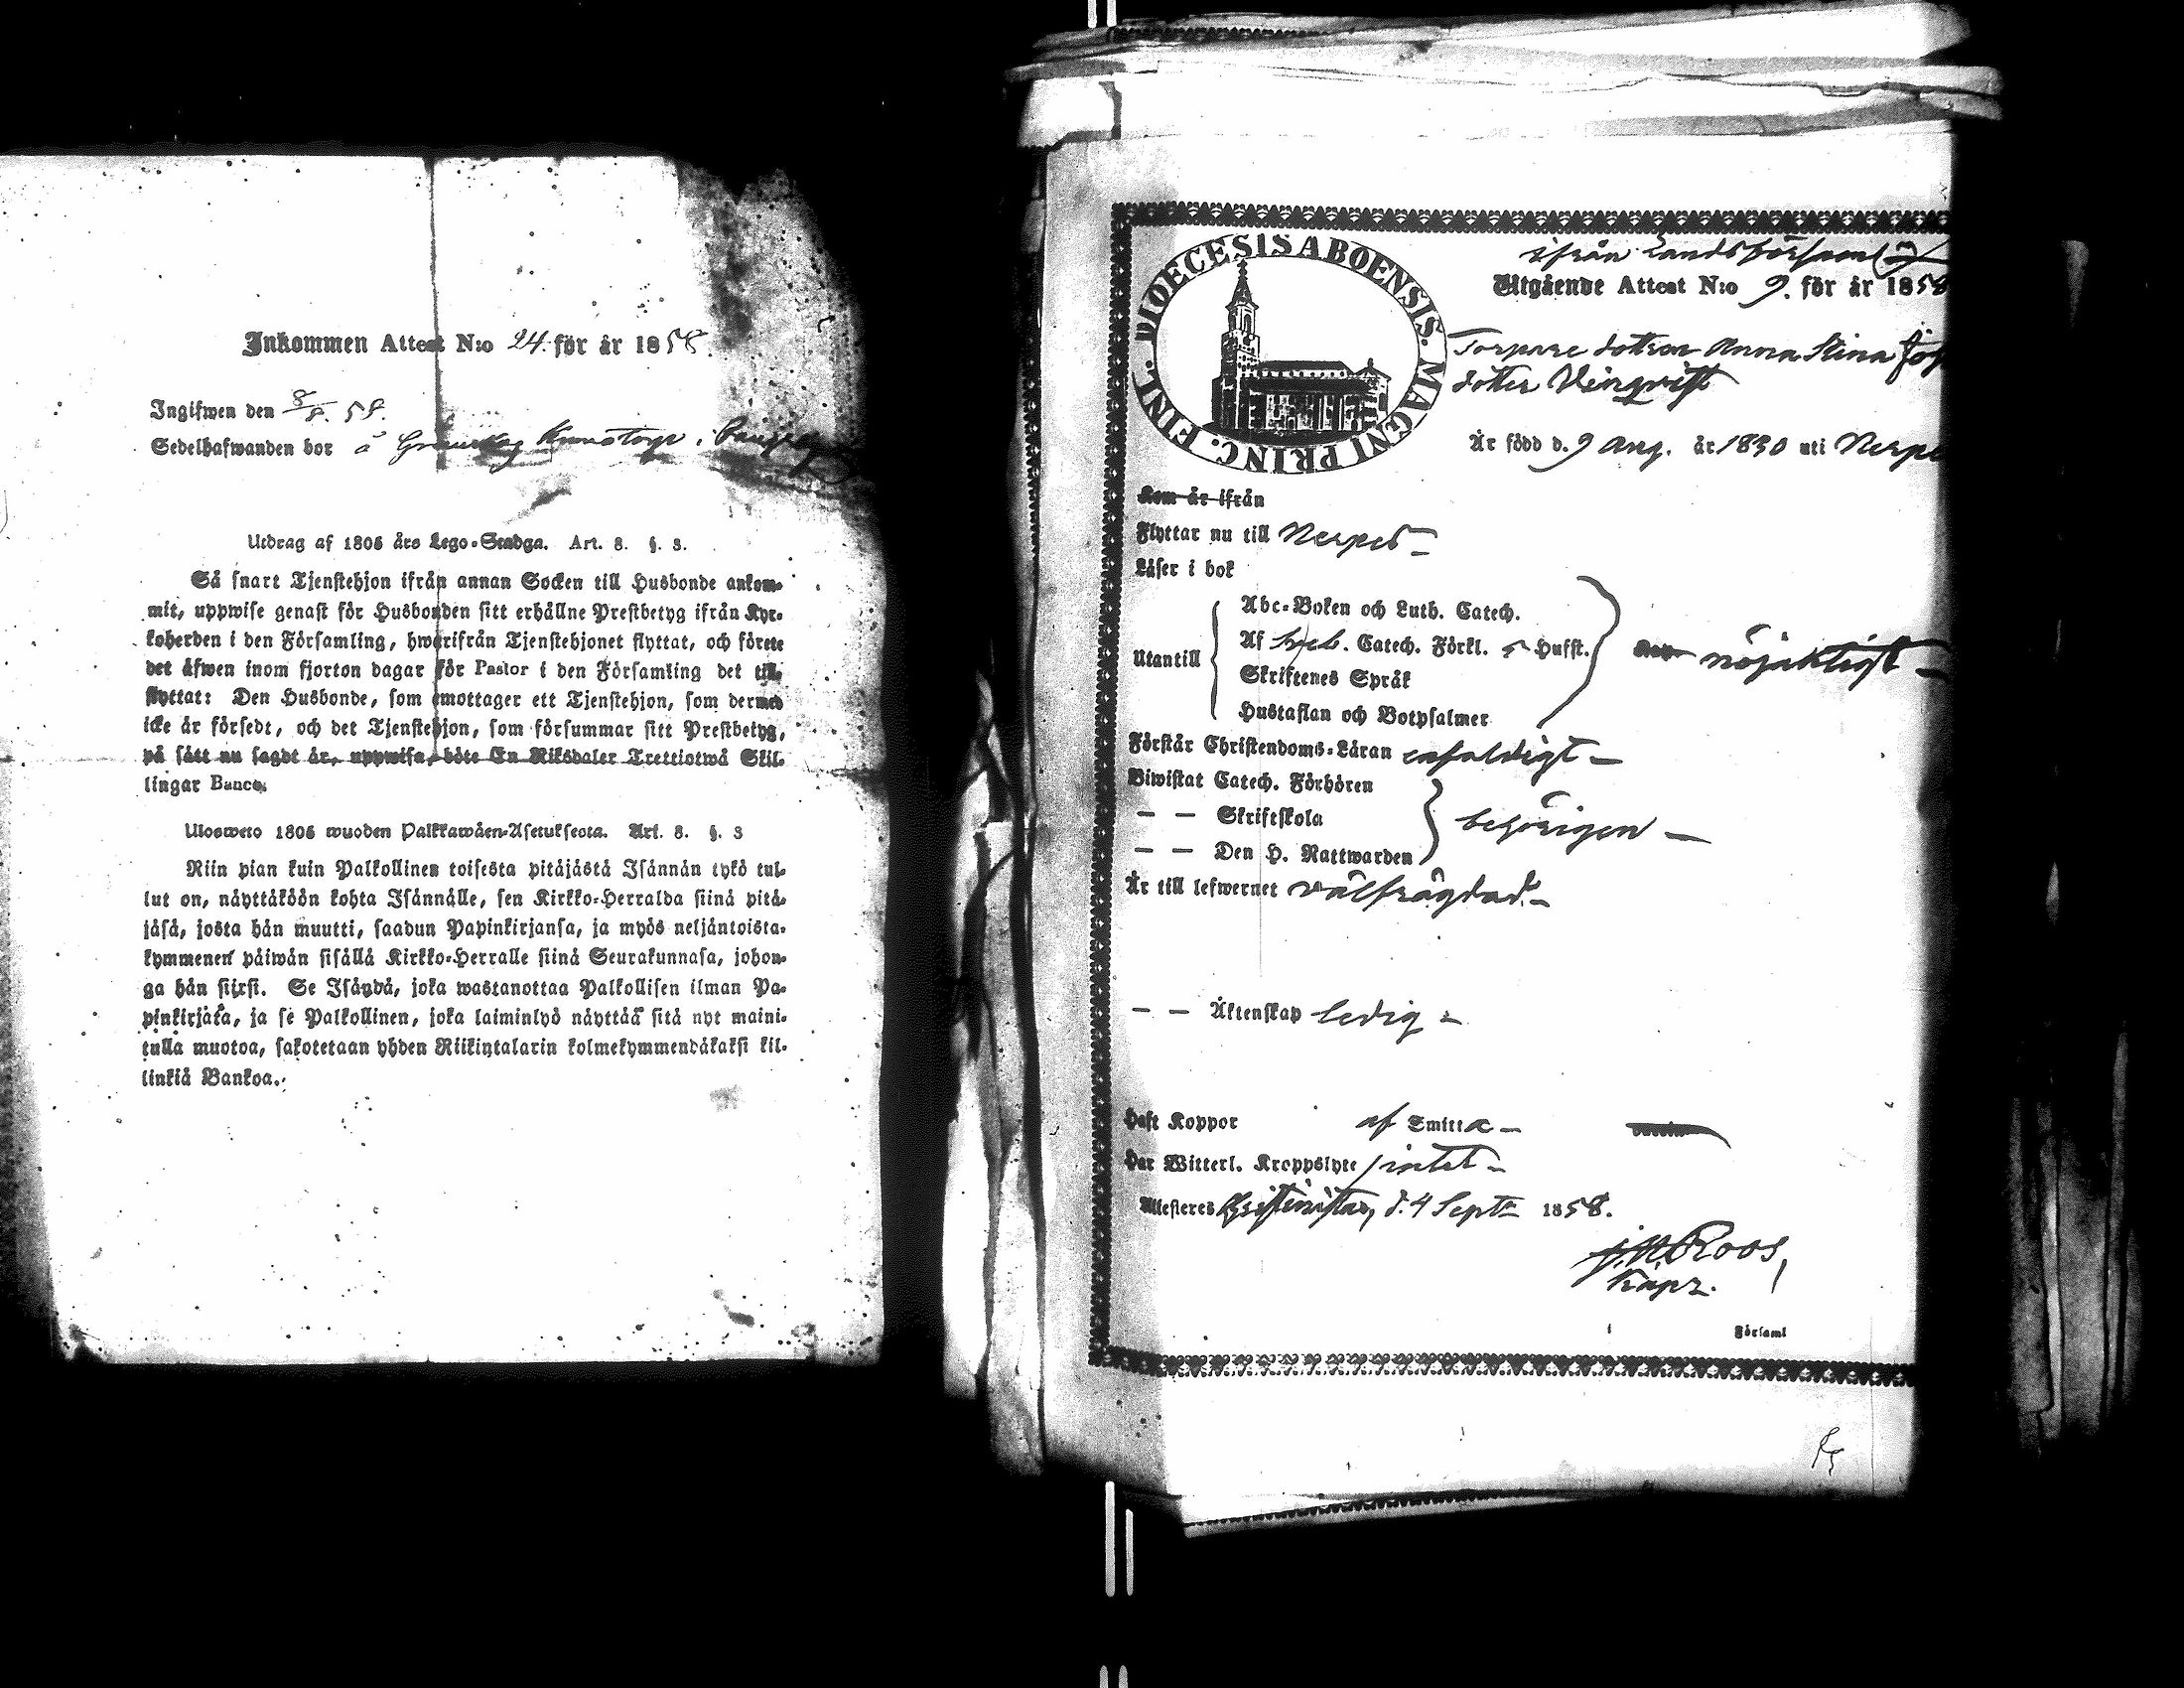 Inkommen Attest N:o 24. för år 1858.
Ingifwen den 8/8. 58.
Sedelhafwanden bor å
Utdrag af 1805 års Lego-Stadga. Art. 8. §. 3.
Så snart Tjenstehjon ifrån annan Socken till Husbonde ankom-
mit, uppwise genast för Husbonden sitt erhållne Prestbetyg ifrån Kyr-
koherden i den Församling, hwarifrån Tjenstehjonet flyttat, och förete
det äfwen inom fjorton dagar för Pastor i den Församling det till-
flyttat: Den Husbonde, som emottager ett Tjenstehjon, som dermed
icke är försedt, och det Tjenstehjon, som försummar sitt Prestbetyg,
på sätt nu sagdt är, uppwisa, böte En Riksdaler Trettiotwå Skil-
lingar Banco.
Ulosweto 1805 wuoden Palkkawäen-Asetuksesta. Art. 8. §. 3
Niin pian kuin Palkollinen toisesta pitäjästä Isännän tykö tul-
lut on, näyttäköön kohta Isännälle, sen Kirkko-Herralda siinä pitä-
jäsä, josta hän muutti, saadun Papinkirjansa, ja myös neljäntoista-
kymmenen päiwän sisällä Kirkko-Herralle siinä Seurakunnasa, johon-
ga hän siirsi. Se Isändä, joka wastanottaa Palkollisen ilman Pa-
pinkirjata, ja se Palkollinen, joka laiminlyö näyttää sitä nyt maini-
tulla muotoa, sakotetaan yhden Riikintalarin kolmekymmendäkaksi kil-
linkiä Bankoa.
DIOECESIS ABOENSIS. MAGNI PRINC. FINL.
ifrån Landsförsaml
Utgående Attest N:o 9. för år 1858
Torpare dottren Anna Stina Joh
dotter Vinqvist
Är född d. 9 Aug. år 1830 uti Nerpe
Kom år ifrån
Flyttar nu till Nerpes
Läser i bok
Abc-Boken och Luth. Catech.
Utantill Af Sveb. Catech. Förkl. Husst. nöjaktigt
Skriftenes Språk
Hustaflan och Botpsalmer
Förstår Christendoms-Läran enfaldigt
Biwistat Catech. Förhören
— — Skriftskola behörigen
— — Den H. Nattwarden
Är till lefwernet välfrägdad.
— — Äktenskap ledig
Haft Koppor af Smitta
Har Witterl. Kroppslyte intet
Attesteres Christinestad, d. 4 Sept. 1858.
J. N. Roos,
Kapz.
Församl